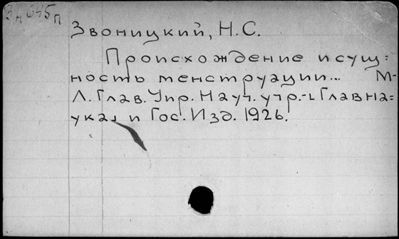 Звоницкий, Н.С.
Происхождение и сущ=
ность менструации... М-
Л. Глав. Упр. Науч. учр.-ı Главна=
ука ı и Гос. Изд. 1926.